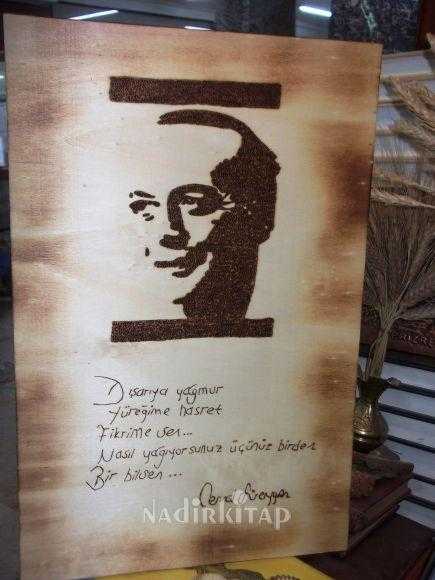 Dışarıya yağmur
Yüreğime hasret
Fikrime sen...
Nasıl yağıyorsunuz üçünüz birden
Bir bilsen ...
Cemal Süreyya
NADİRKİTAP